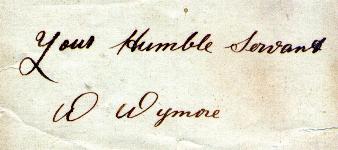 Your Humble Servant
W Wymore